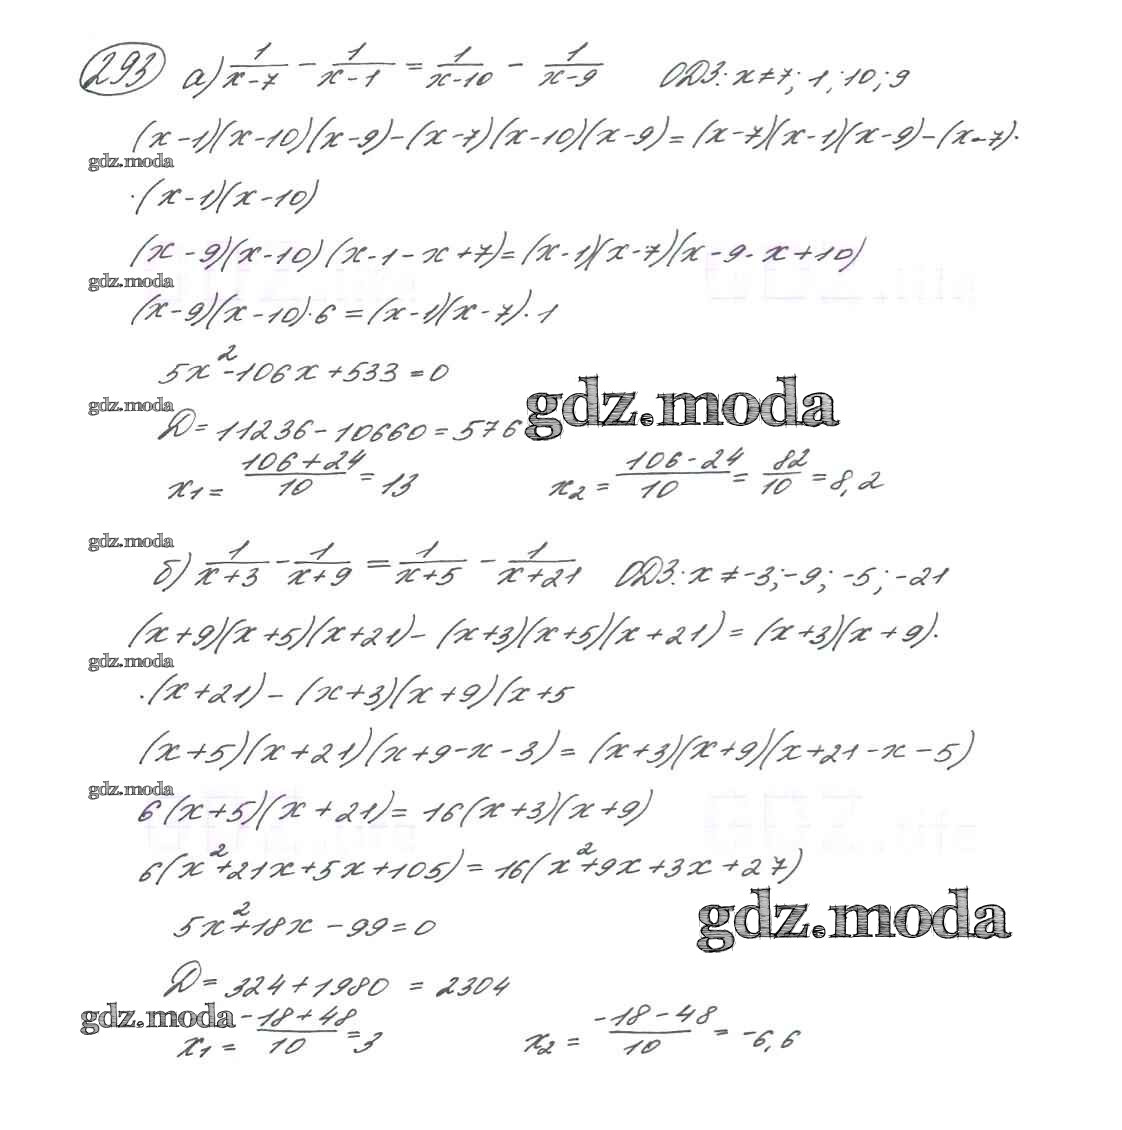 293 а) 1/(x-7) - 1/(x-1) = 1/(x-10) - 1/(x-9) ОДЗ: x≠7; 1; 10; 9
(x-1)(x-10)(x-9)-(x-7)(x-10)(x-9)=(x-7)(x-1)(x-9)-(x-7)·
gdz.moda
·(x-1)(x-10)
(x-9)(x-10)(x-1-x+7)=(x-1)(x-7)(x-9-x+10)
gdz.moda
(x-9)(x-10)·6=(x-1)(x-7)·1
5x²-106x+533=0
gdz.moda
gdz.moda
Д=11236-10660=576
x₁=(106+24)/10=13 x₂=(106-24)/10=82/10=8,2
gdz.moda
б) 1/(x+3) - 1/(x+9) = 1/(x+5) - 1/(x+21) ОДЗ: x≠-3;-9; -5; -21
(x+9)(x+5)(x+21)-(x+3)(x+5)(x+21)=(x+3)(x+9)·
gdz.moda
·(x+21)-(x+3)(x+9)(x+5
(x+5)(x+21)(x+9-x-3)=(x+3)(x+9)(x+21-x-5)
gdz.moda
6(x+5)(x+21)=16(x+3)(x+9)
6(x²+21x+5x+105)=16(x²+9x+3x+27)
gdz.moda
5x²+18x-99=0
Д=324+1980=2304
gdz.moda
x₁=(-18+48)/10=3 x₂=(-18-48)/10=-6,6